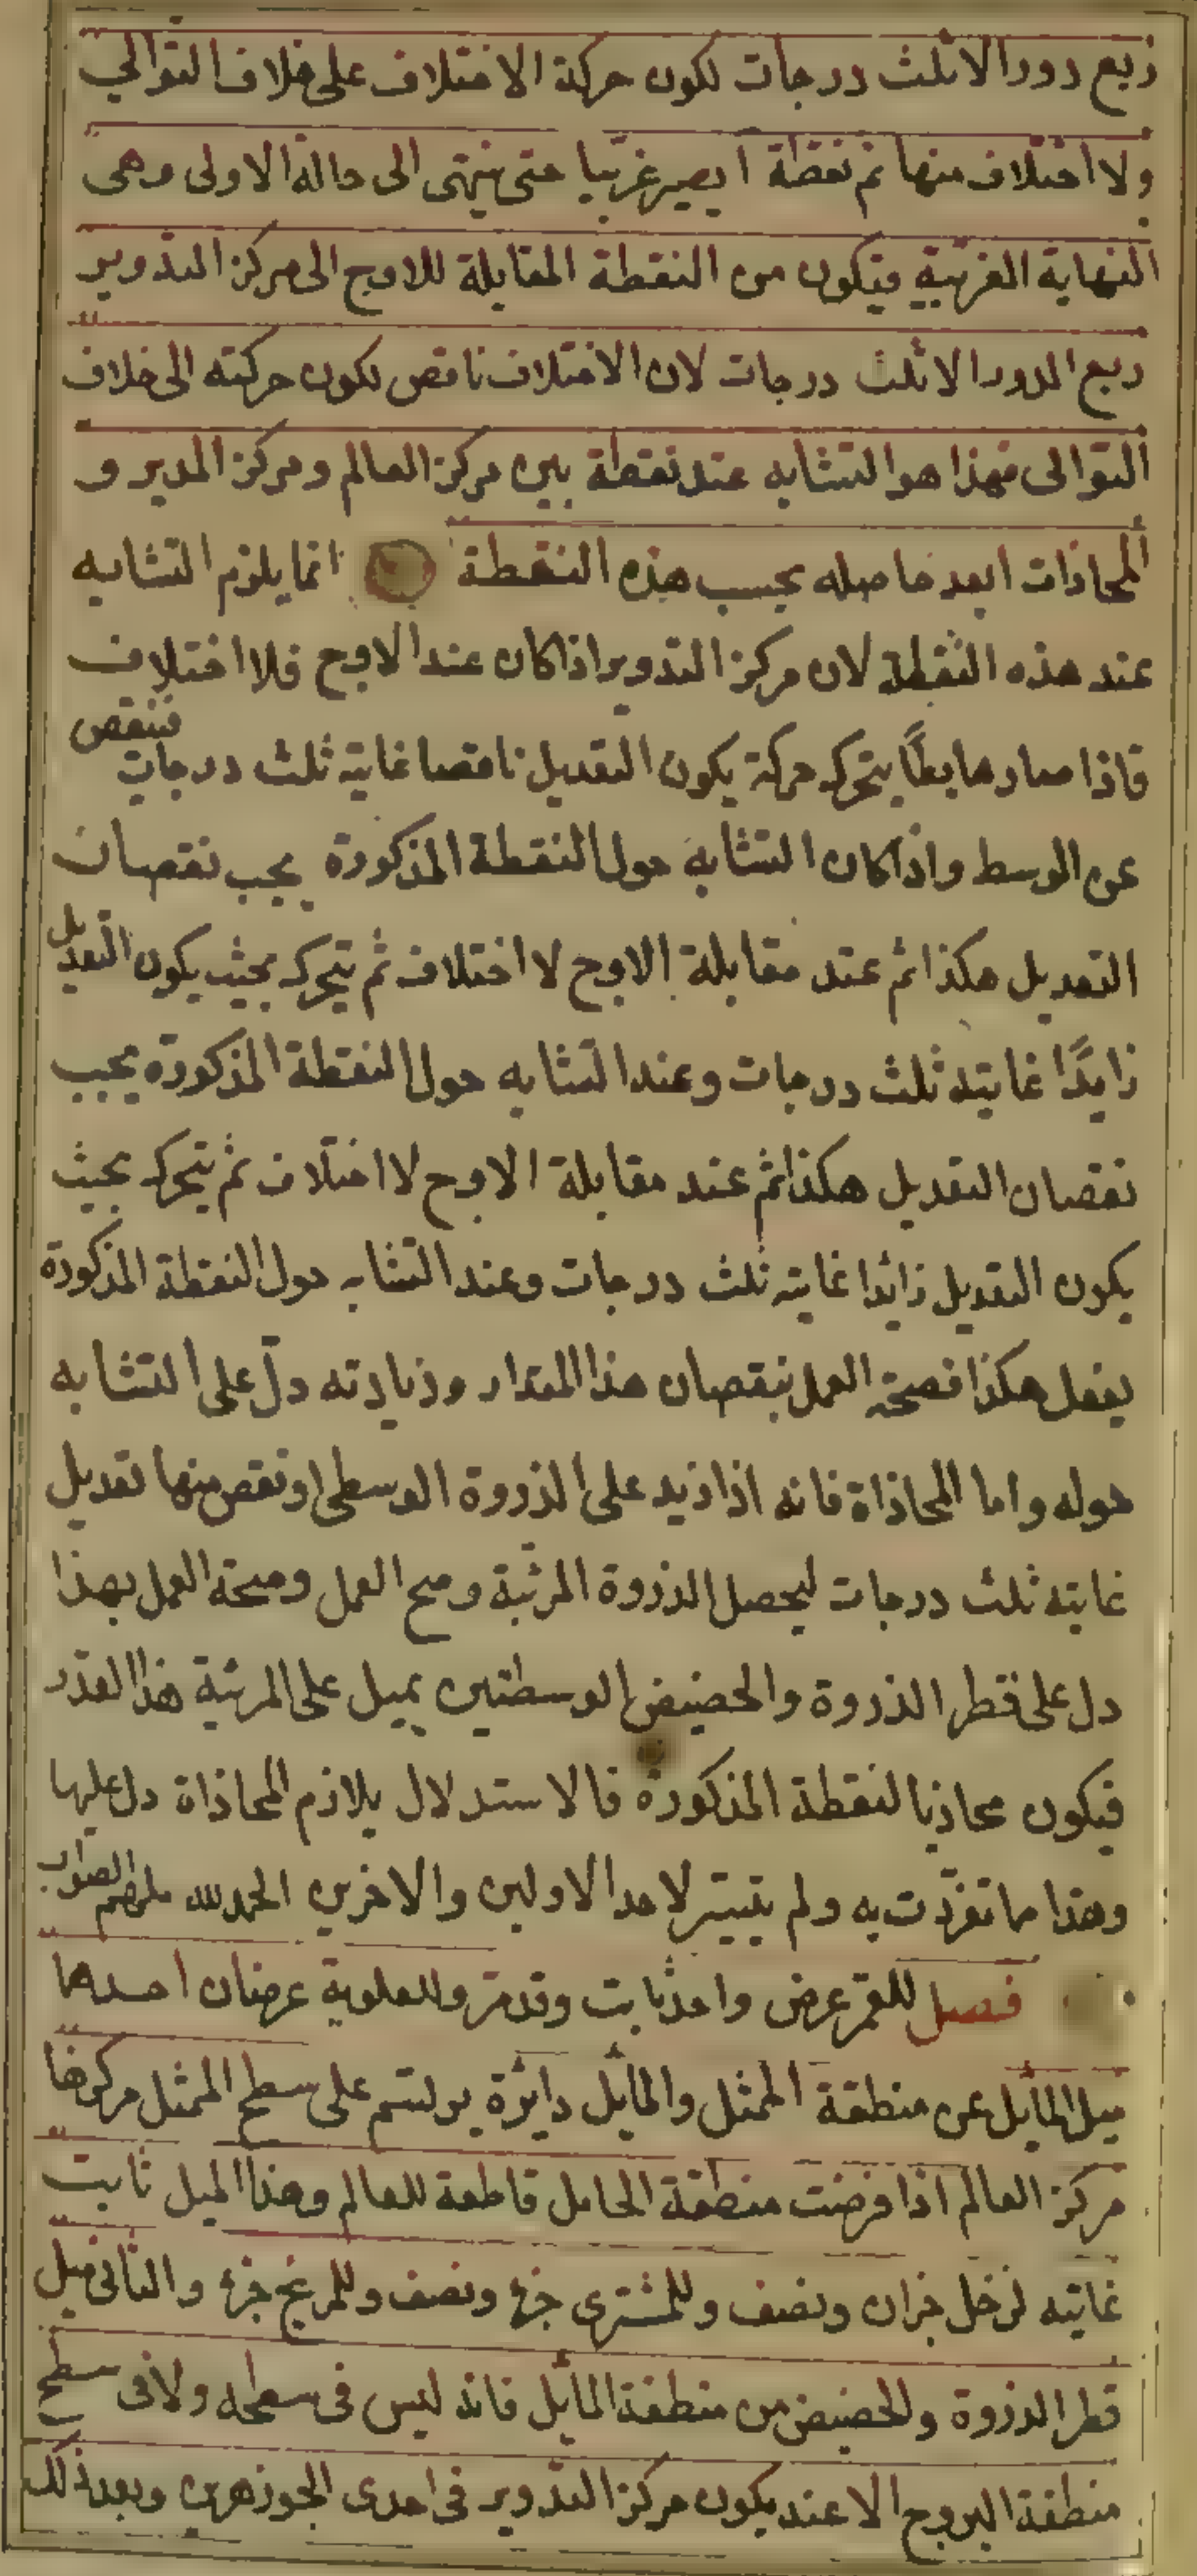 ربع دور الا ثلث درجات لكون حركة الاختلاف على خلاف التوالي
ولا اختلاف منها ثم نقطة ا يصير غربيا حتى ينتهى الى حالة الاولى وهى
النهاية الغربية فيكون من النقطة المقابلة للاوج الى مركز التدوير
ربع الدور الا ثلث درجات لان الاختلاف ناقص لكون حركته الى خلاف
التوالى فهذا هو التشابه عند نقطة بين مركز العالم ومركز المدير و
المحاذات ابعد حاصله بحسب هذه النقطة انما يلزم التشابه
عند هذه النقطة لان مركز التدوير اذا كان عند الاوج فلا اختلاف
فاذا صار هابطًا يتحرك حركة يكون التعديل ناقصا غايته ثلث درجات فينقص
عن الوسط واذا كان التشابه حول النقطة المذكورة يجب نقصان
التعديل هكذا ثم عند مقابلة الاوج لا اختلاف ثم يتحرك بحيث يكون التعديل
زايدًا غايته ثلث درجات وعند التشابه حول النقطة المذكورة يجب
نقصان التعديل هكذا ثم عند مقابلة الاوج لا اختلاف ثم يتحرك بحيث
يكون التعديل زائدا غايته ثلث درجات وعند التشابه حول النقطة المذكورة
يفعل هكذا فصحة العمل بنقصان هذا المقدار وزيادته دلّ على التشابه
حوله واما المحاذاة فانه اذا زيد على الذروة الوسطى او نقص منها تعديل
غايته ثلث درجات ليحصل الذروة المرئية وصح العمل وصحة العمل بهذا
دل على قطر الذروة والحضيض الوسطيين يميل على المرئية هذا القدر
فيكون محاذيا لنقطة المذكورة فالاستدلال يلازم المحاذاة دل عليها
وهذا ما تفرّدت به ولم يتيسّر لاحد الاولين والاخرين الحمد لله ملهم الصواب
فصل للقمر عرض واحد ثابت وقد مرّ وللعلوية عرضان احدهما
ميل المايل عن منطقة الممثل والمايل دايرة يرتسم على سطح الممثل مركزها
مركز العالم اذا فرضت منطقة الحامل قاطعة للعالم وهذا الميل ثابت
غايته لزحل جزان ونصف وللمشترى جزء ونصف وللمريخ جزء والثانى ميل
قطر الذروة والحضيض من منطقة المايل فانه ليس فى سطحه ولا فى سطح
منطقة البروج الا عند يكون مركز التدوير فى احدى الجوزهرين وبعد ذلك